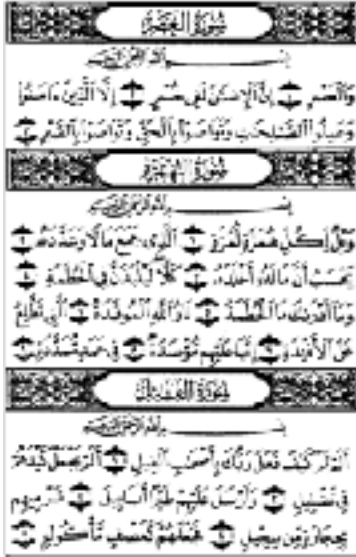 سُورَةُ العَصْرِ
بِسْمِ اللَّهِ الرَّحْمَٰنِ الرَّحِيمِ
وَالْعَصْرِ ١ إِنَّ الْإِنسَانَ لَفِي خُسْرٍ ٢ إِلَّا الَّذِينَ ءَامَنُوا
وَعَمِلُوا الصَّالِحَاتِ وَتَوَاصَوْا بِالْحَقِّ وَتَوَاصَوْا بِالصَّبْرِ ٣
سُورَةُ الهُمَزَةِ
بِسْمِ اللَّهِ الرَّحْمَٰنِ الرَّحِيمِ
وَيْلٌ لِّكُلِّ هُمَزَةٍ لُّمَزَةٍ ١ الَّذِي جَمَعَ مَالًا وَعَدَّدَهُ ٢
يَحْسَبُ أَنَّ مَالَهُ أَخْلَدَهُ ٣ كَلَّا لَيُنبَذَنَّ فِي الْحُطَمَةِ ٤
وَمَا أَدْرَاكَ مَا الْحُطَمَةُ ٥ نَارُ اللَّهِ الْمُوقَدَةُ ٦ الَّتِي تَطَّلِعُ
عَلَى الْأَفْئِدَةِ ٧ إِنَّهَا عَلَيْهِم مُّؤْصَدَةٌ ٨ فِي عَمَدٍ مُّمَدَّدَةٍ ٩
سُورَةُ الفِيلِ
بِسْمِ اللَّهِ الرَّحْمَٰنِ الرَّحِيمِ
أَلَمْ تَرَ كَيْفَ فَعَلَ رَبُّكَ بِأَصْحَابِ الْفِيلِ ١ أَلَمْ يَجْعَلْ كَيْدَهُمْ
فِي تَضْلِيلٍ ٢ وَأَرْسَلَ عَلَيْهِمْ طَيْرًا أَبَابِيلَ ٣ تَرْمِيهِم
بِحِجَارَةٍ مِّن سِجِّيلٍ ٤ فَجَعَلَهُمْ كَعَصْفٍ مَّأْكُولٍ ٥